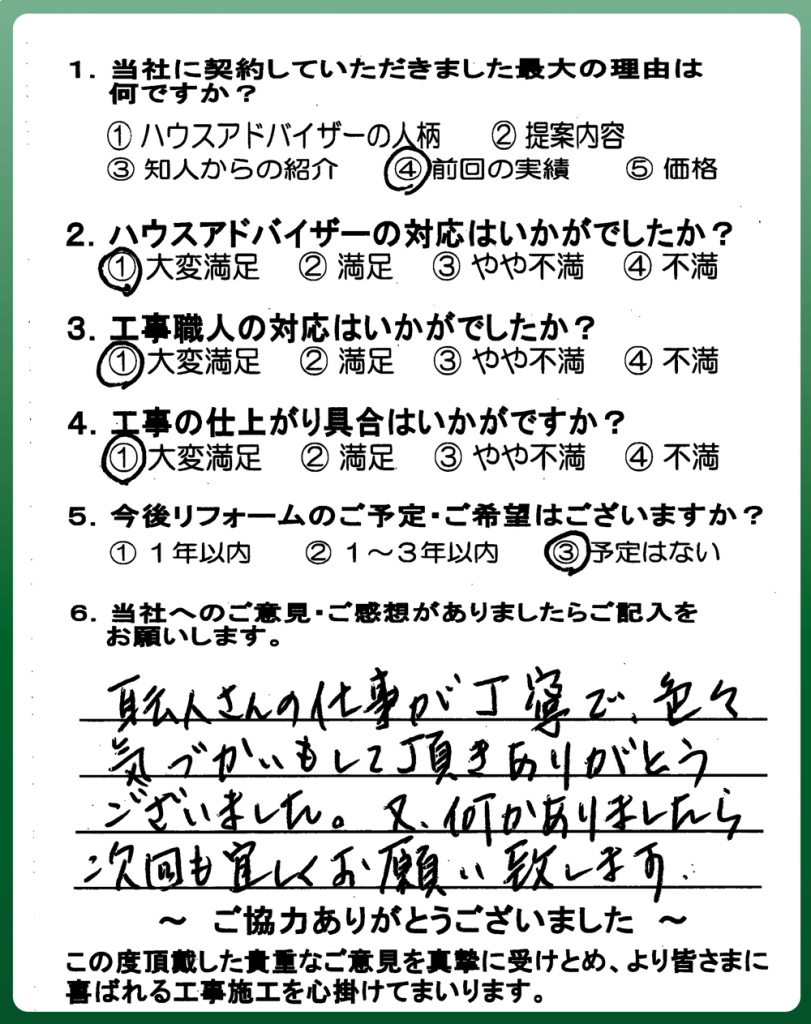 1. 当社に契約していただきました最大の理由は
何ですか？
① ハウスアドバイザーの人柄　② 提案内容
③ 知人からの紹介　④ 前回の実績　⑤ 価格
2. ハウスアドバイザーの対応はいかがでしたか？
① 大変満足　② 満足　③ やや不満　④ 不満
3. 工事職人の対応はいかがでしたか？
① 大変満足　② 満足　③ やや不満　④ 不満
4. 工事の仕上がり具合はいかがですか？
① 大変満足　② 満足　③ やや不満　④ 不満
5. 今後リフォームのご予定・ご希望はございますか？
① 1年以内　② 1～3年以内　③ 予定はない
6. 当社へのご意見・ご感想がありましたらご記入を
お願いします。
職人さんの仕事が丁寧で、色々
気づかいもして頂きありがとう
ございました。又、何かありましたら
次回も宜しくお願い致します。
～ ご協力ありがとうございました ～
この度頂戴した貴重なご意見を真摯に受けとめ、より皆さまに
喜ばれる工事施工を心掛けてまいります。